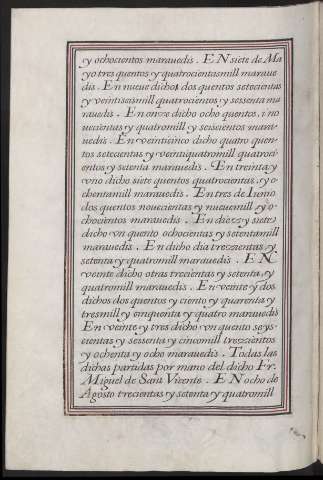 ıy ochocientos marauedis. EN siete de Ma
yo tres quentos y quatrocientasmill maraue
dis. En nueue dichos dos quentos setecientas
ıy veintiseismill quatrocientos ıy sessenta ma
rauedis. En onze dicho ocho quentos, no
uecientas ıy quatromill y seiscientos mara
uedis. En veinticinco dicho quatro quen
tos setecientas ıy veintiquatromill quatroci
entos ıy setenta marauedis. En treinta y
vno dicho siete quentos quatrocientas ıy o
chentamill marauedis. En tres de Iunio
dos quentos nouecientas ıy nueuemill ıy o
chocientos marauedis. En diez ıy siete
dicho vn quento ochocientas ıy setentamill
marauedis. En dicho dia trezientas ıy
setenta y quatromill marauedis. EN
veinte dicho otras trecientas ıy setenta ıy
quatromill marauedis. En veinte ıy dos
dichos dos quentos ıy ciento ıy quarenta ıy
tresmill ıy cinquenta ıy quatro marauedis
En veinte ıy tres dicho vn quento seys
cientas ıy sessenta ıy cincomill trezientos
ıy ochenta ıy ocho marauedis. Todas las
dichas partidas por mano del dicho Fr.
Miguel de Sant Vicente. EN ocho de
Agosto trecientas ıy setenta ıy quatromill